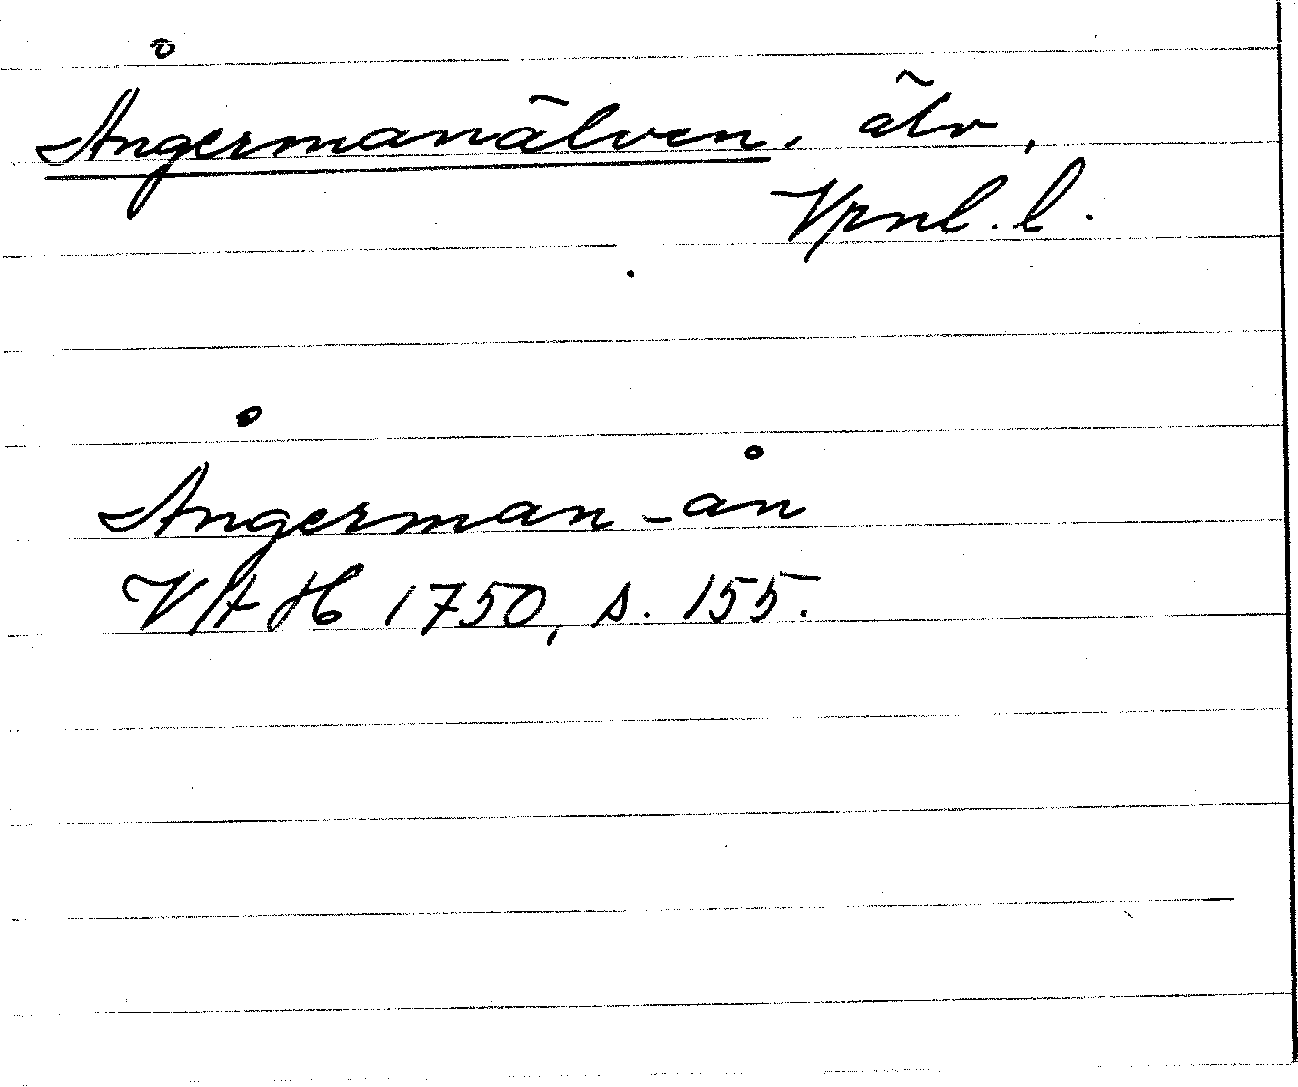 Ångermanälven, älv,
Vrnl. l.
Ångerman-ån
VAH 1750, s. 155.